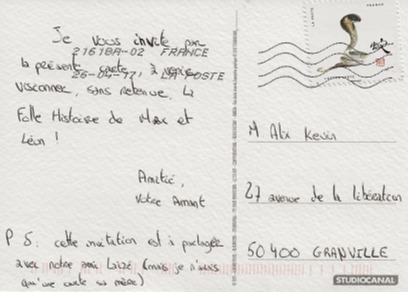 Je vous invite par
21618A-02 FRANCE
la présente carte à venir
26-04-17 LA POSTE
visionner, sans retenue, La
Folle Histoire de Max et
Léon !
Amitié,
Votre Amant
P.S: cette invitation est à partager
avec notre ami (mais je n'avais
qu'une carte sa mère)
FRANCE
LA POSTE
M Alix Kevin
27 avenue de la libération
50400 GRANVILLE
STUDIOCANAL